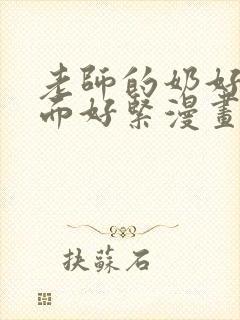 老師的奶好
而好緊漫畫
抉蘇石